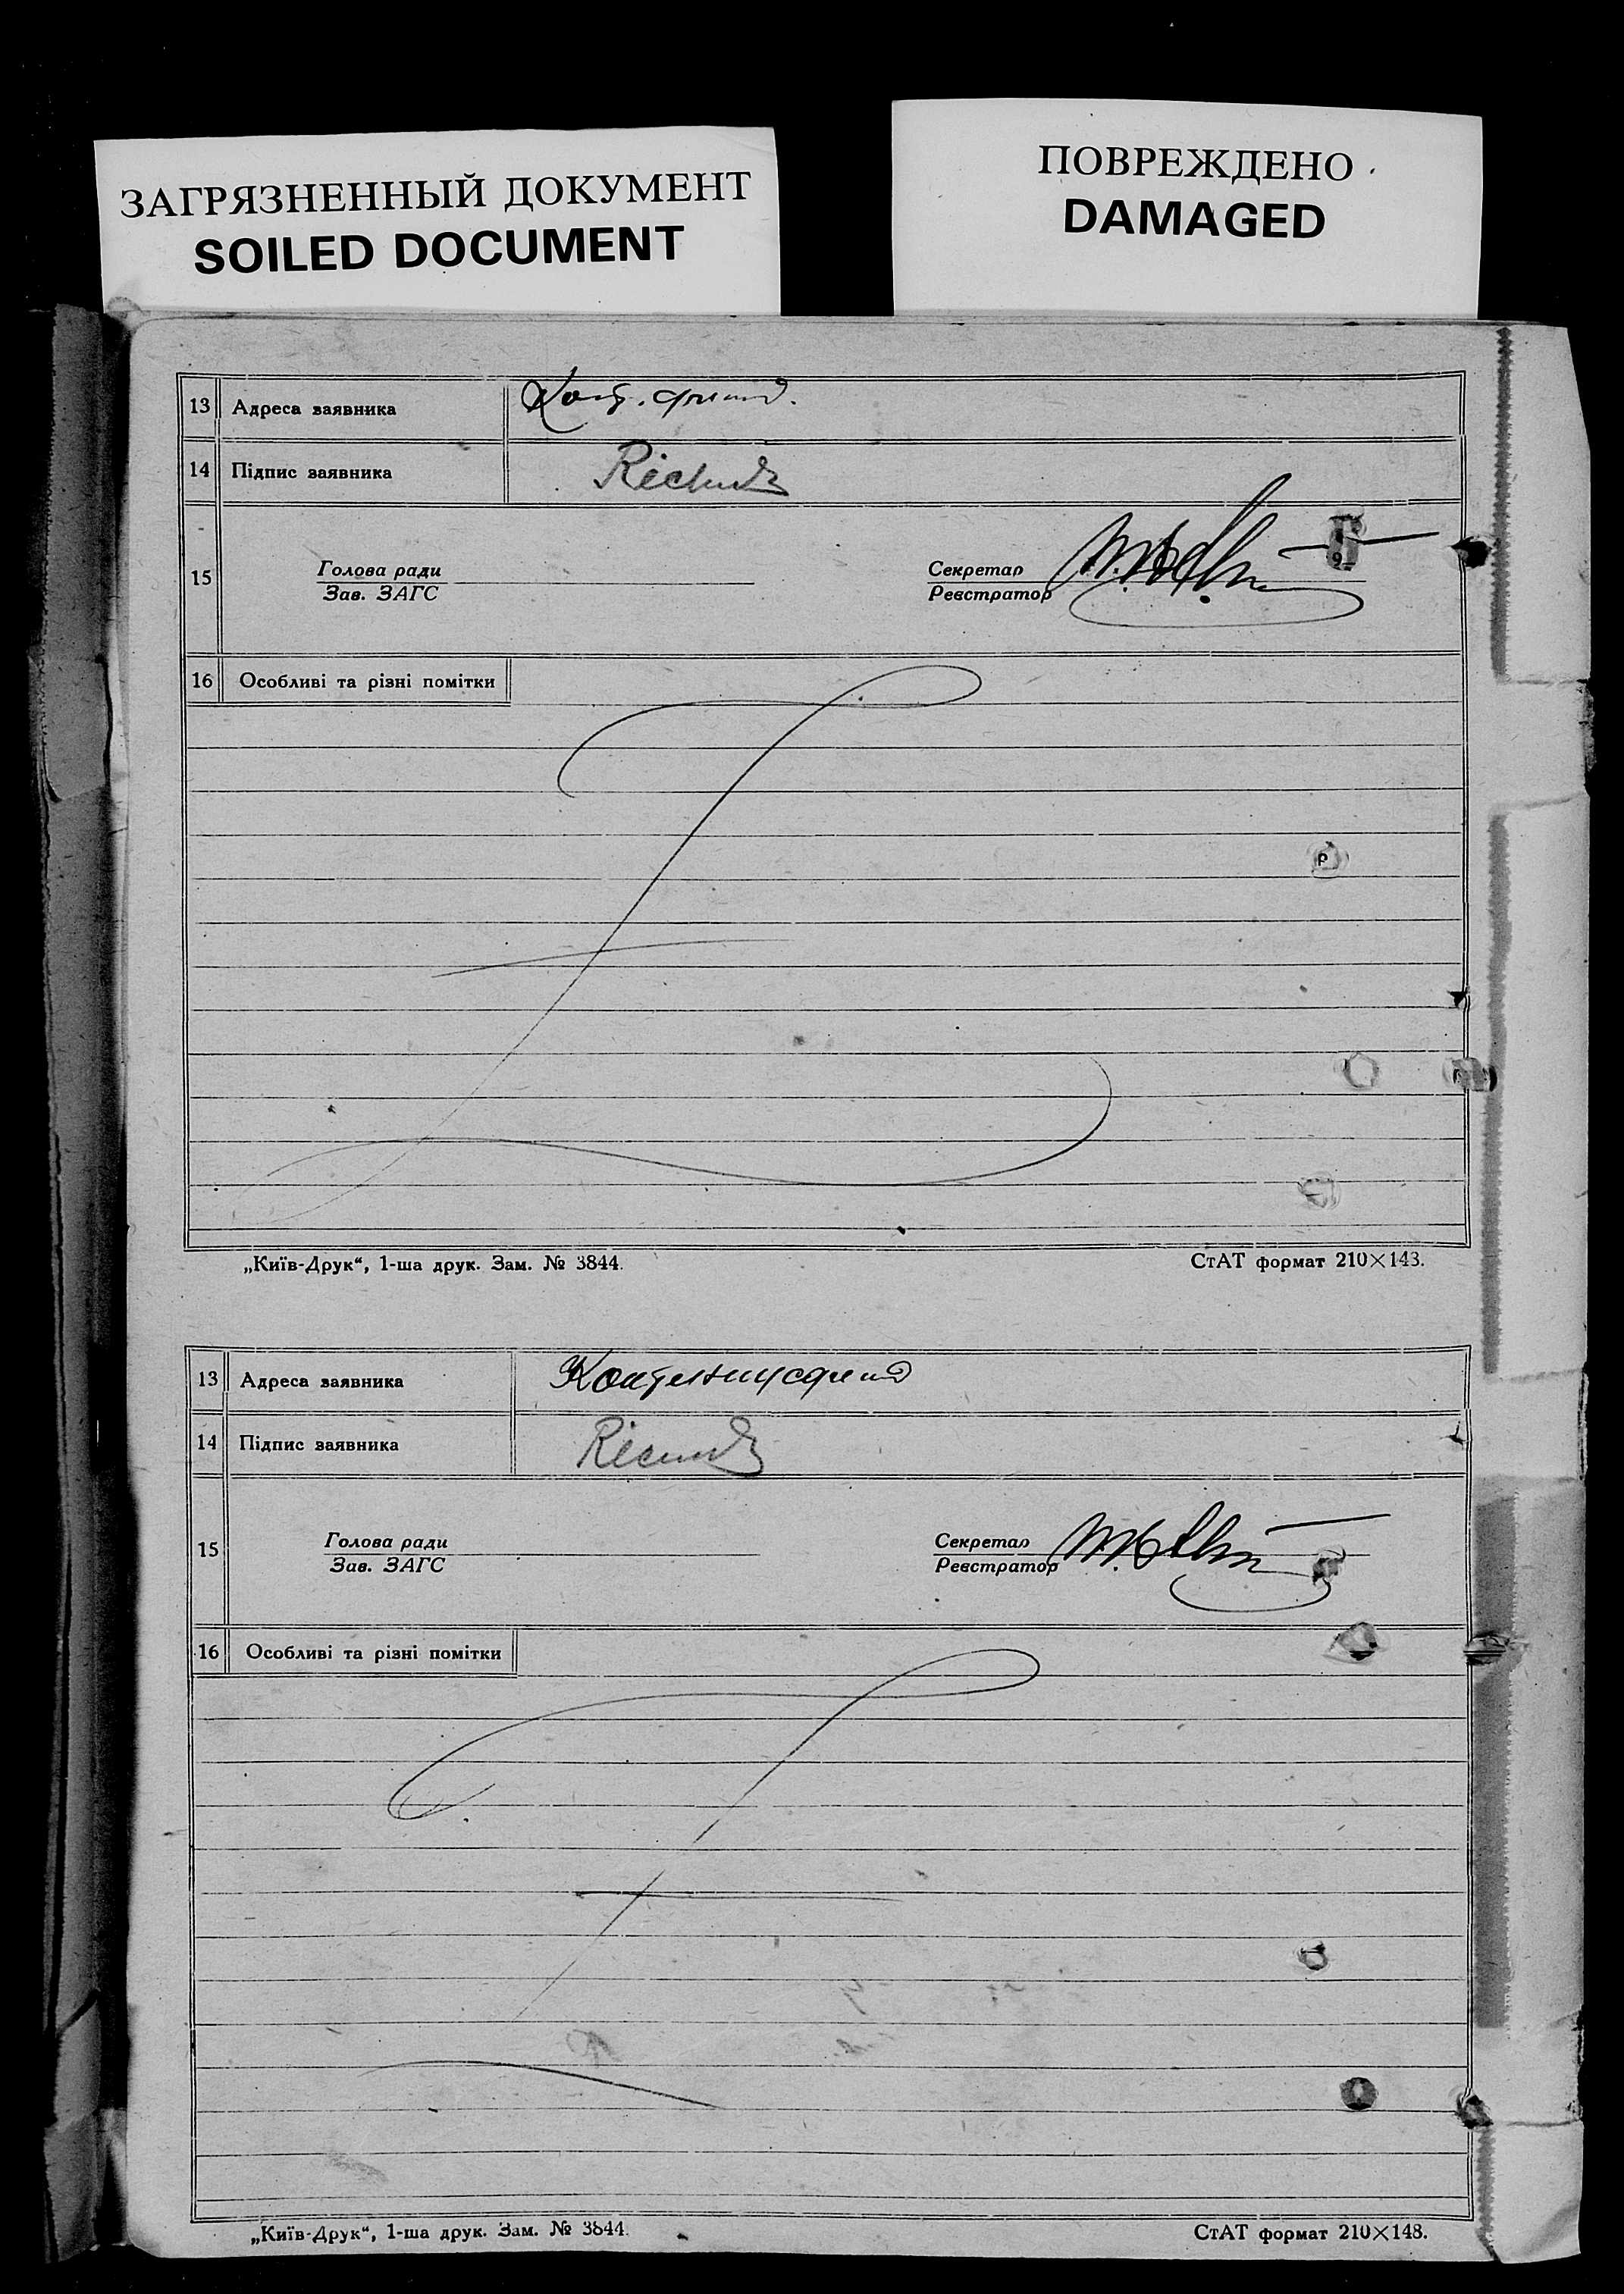 ЗАГРЯЗНЕННЫЙ ДОКУМЕНТ
SOILED DOCUMENT
ПОВРЕЖДЕНО
DAMAGED
13 Адреса заявника
14 Підпис заявника
15 Голова ради Секретар
Зав. ЗАГС Реєстратор
16 Особливі та різні помітки
„Київ-Друк“, 1-ша друк. Зам. № 3844. СтАТ формат 210×143.
13 Адреса заявника
14 Підпис заявника
15 Голова ради Секретар
Зав. ЗАГС Реєстратор
16 Особливі та різні помітки
„Київ-Друк“, 1-ша друк. Зам. № 3844. СтАТ формат 210×148.